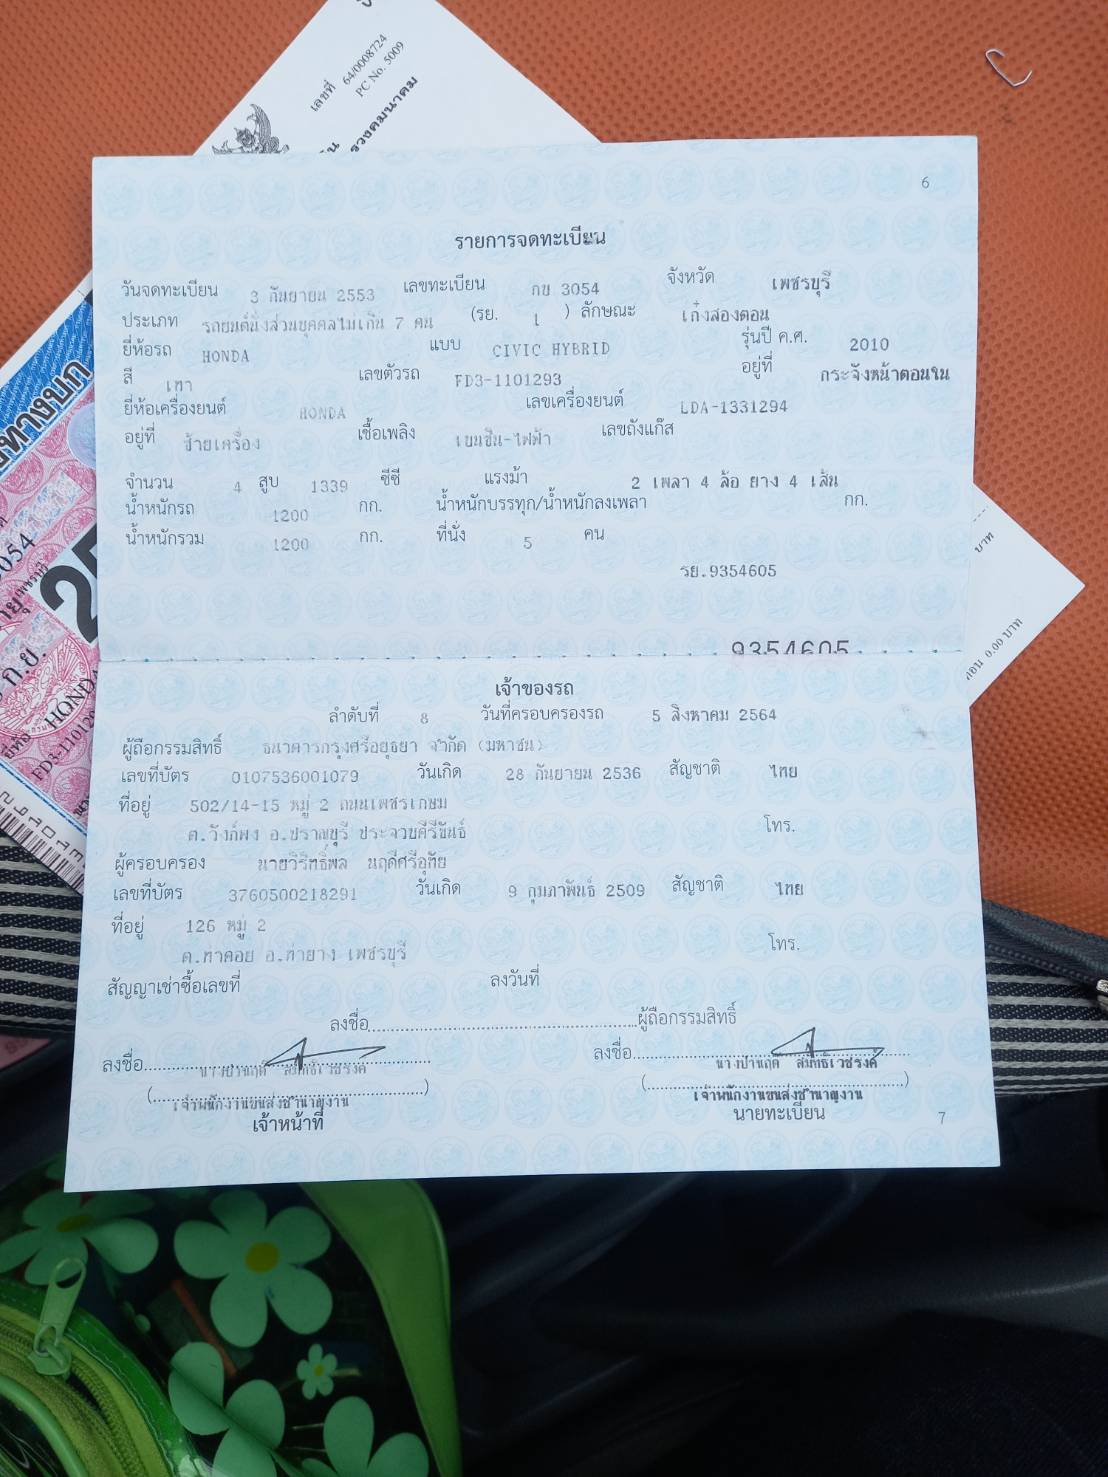 เลขที่ 64/0008724
PC No. 5009
รวงคมนาคม
6
รายการจดทะเบียน
วันจดทะเบียน 3 กันยายน 2553 เลขทะเบียน กข 3054 จังหวัด เพชรบุรี
ประเภท รถยนต์นั่งส่วนบุคคลไม่เกิน 7 คน (รย. 1 ) ลักษณะ เก๋งสองตอน
ยี่ห้อรถ HONDA แบบ CIVIC HYBRID รุ่นปี ค.ศ. 2010
สี เทา เลขตัวรถ FD3-1101293 อยู่ที่ กระจังหน้าตอนใน
ยี่ห้อเครื่องยนต์ HONDA เลขเครื่องยนต์ LDA-1331294
อยู่ที่ ซ้ายเครื่อง เชื้อเพลิง เบนซิน-ไฟฟ้า เลขถังแก๊ส
จำนวน 4 สูบ 1339 ซีซี แรงม้า 2 เพลา 4 ล้อ ยาง 4 เส้น
น้ำหนักรถ 1200 กก. น้ำหนักบรรทุก/น้ำหนักลงเพลา กก.
น้ำหนักรวม 1200 กก. ที่นั่ง 5 คน
รย.9354605
9354605
เจ้าของรถ
ลำดับที่ 8 วันที่ครอบครองรถ 5 สิงหาคม 2564
ผู้ถือกรรมสิทธิ์ ธนาคารกรุงศรีอยุธยา จำกัด (มหาชน)
เลขที่บัตร 0107536001079 วันเกิด 28 กันยายน 2536 สัญชาติ ไทย
ที่อยู่ 502/14-15 หมู่ 2 ถนนเพชรเกษม
ต.วังก์พง อ.ปราณบุรี ประจวบคีรีขันธ์ โทร.
ผู้ครอบครอง นายวิริทธิ์พล นฤดีศรีอุทัย
เลขที่บัตร 3760500218291 วันเกิด 9 กุมภาพันธ์ 2509 สัญชาติ ไทย
ที่อยู่ 126 หมู่ 2
ต.ท่าคอย อ.ท่ายาง เพชรบุรี โทร.
สัญญาเช่าซื้อเลขที่ ลงวันที่
ลงชื่อ ผู้ถือกรรมสิทธิ์
ลงชื่อ ลงชื่อ
เจ้าพนักงานขนส่งชำนาญงาน เจ้าพนักงานขนส่งชำนาญงาน
เจ้าหน้าที่ นายทะเบียน
7
บาท
0.00 บาท
ทางบก
3054
ก.ย.
HONDA